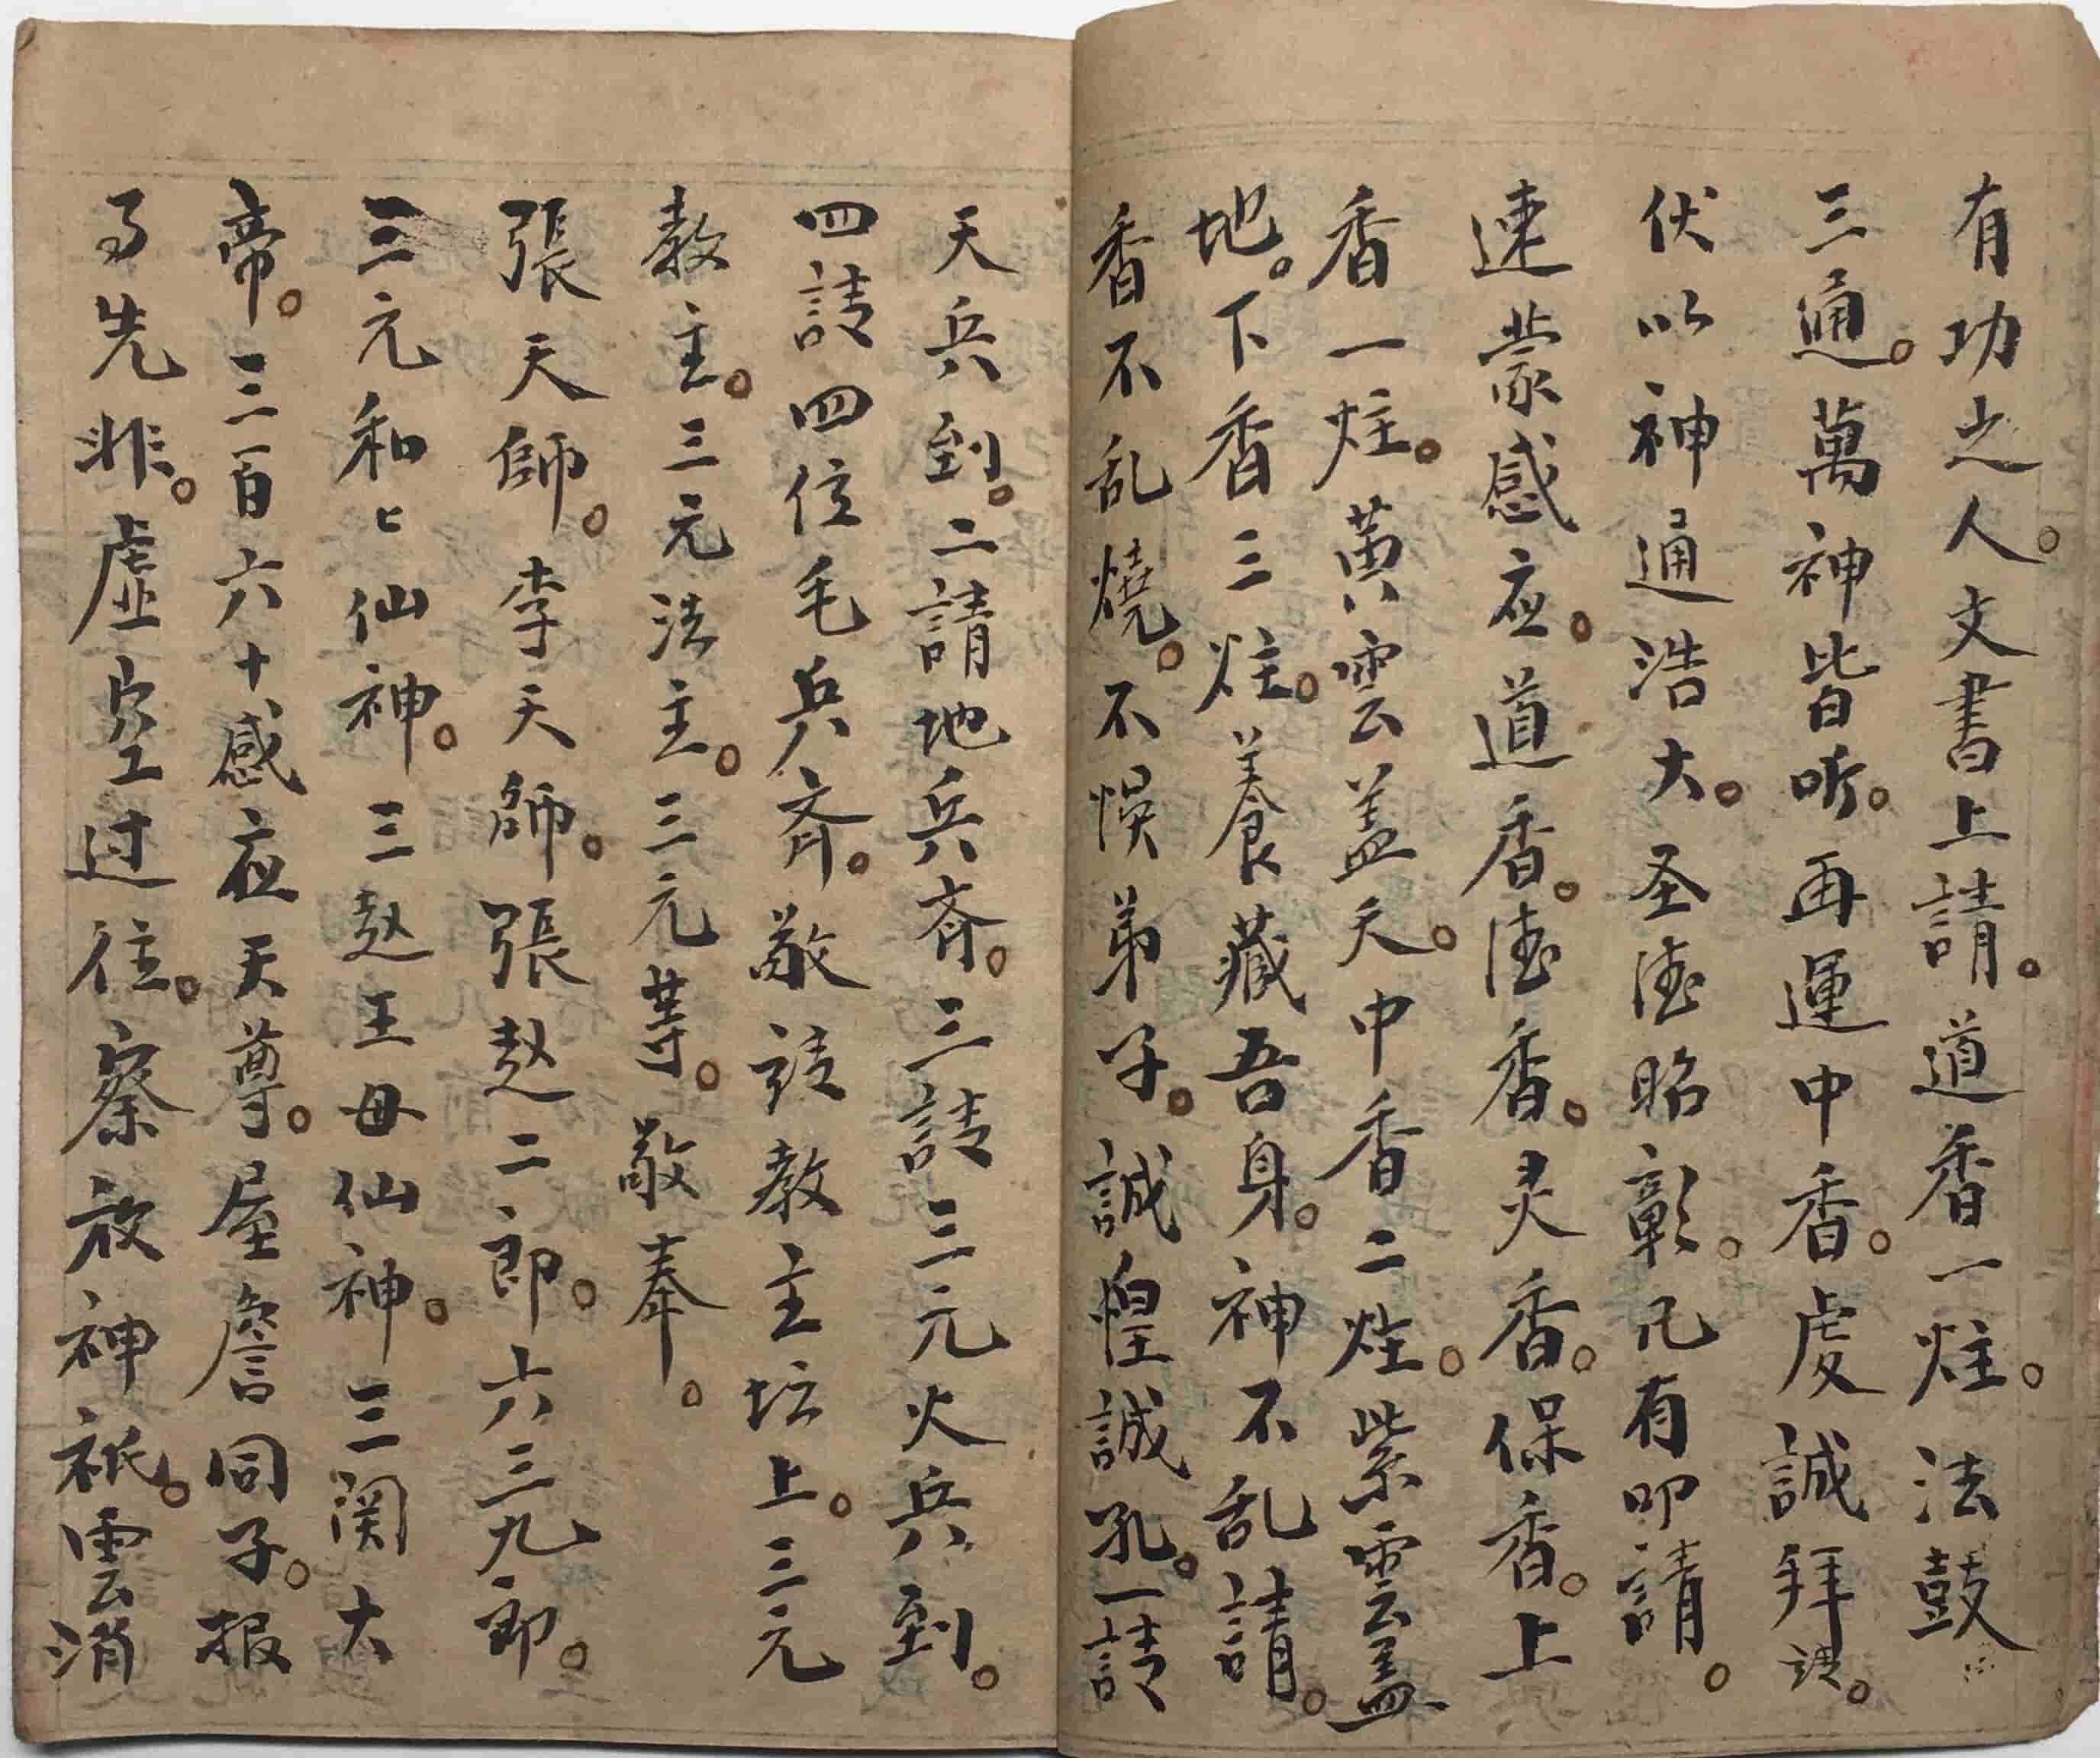 有功之人。文書上請。道香一炷。法鼓
三通。萬神皆听。再運中香。虔誠拜請。
伏以神通浩大。圣德昭彰。凡有叩請。
速蒙感应。道香。德香。灵香。保香。上
香一炷。黄雲盖天。中香二炷。紫雲盖
地。下香三炷。養藏吾身。神不乱請。
香不乱燒。不悞弟子。誠惶誠孔。一請
天兵到。二請地兵斉。三請三元火兵到。
四請四位毛兵斉。敬請教主坛上。三元
教主。三元法主。三元等。敬奉。
張天師。李天師。張赵二郎。六三九郎。
三元和匕仙神。三赵王母仙神。三関大
帝。三百六十感应天尊。屋詹同子。报
事先非。虚空过往。察放神祇。雲消